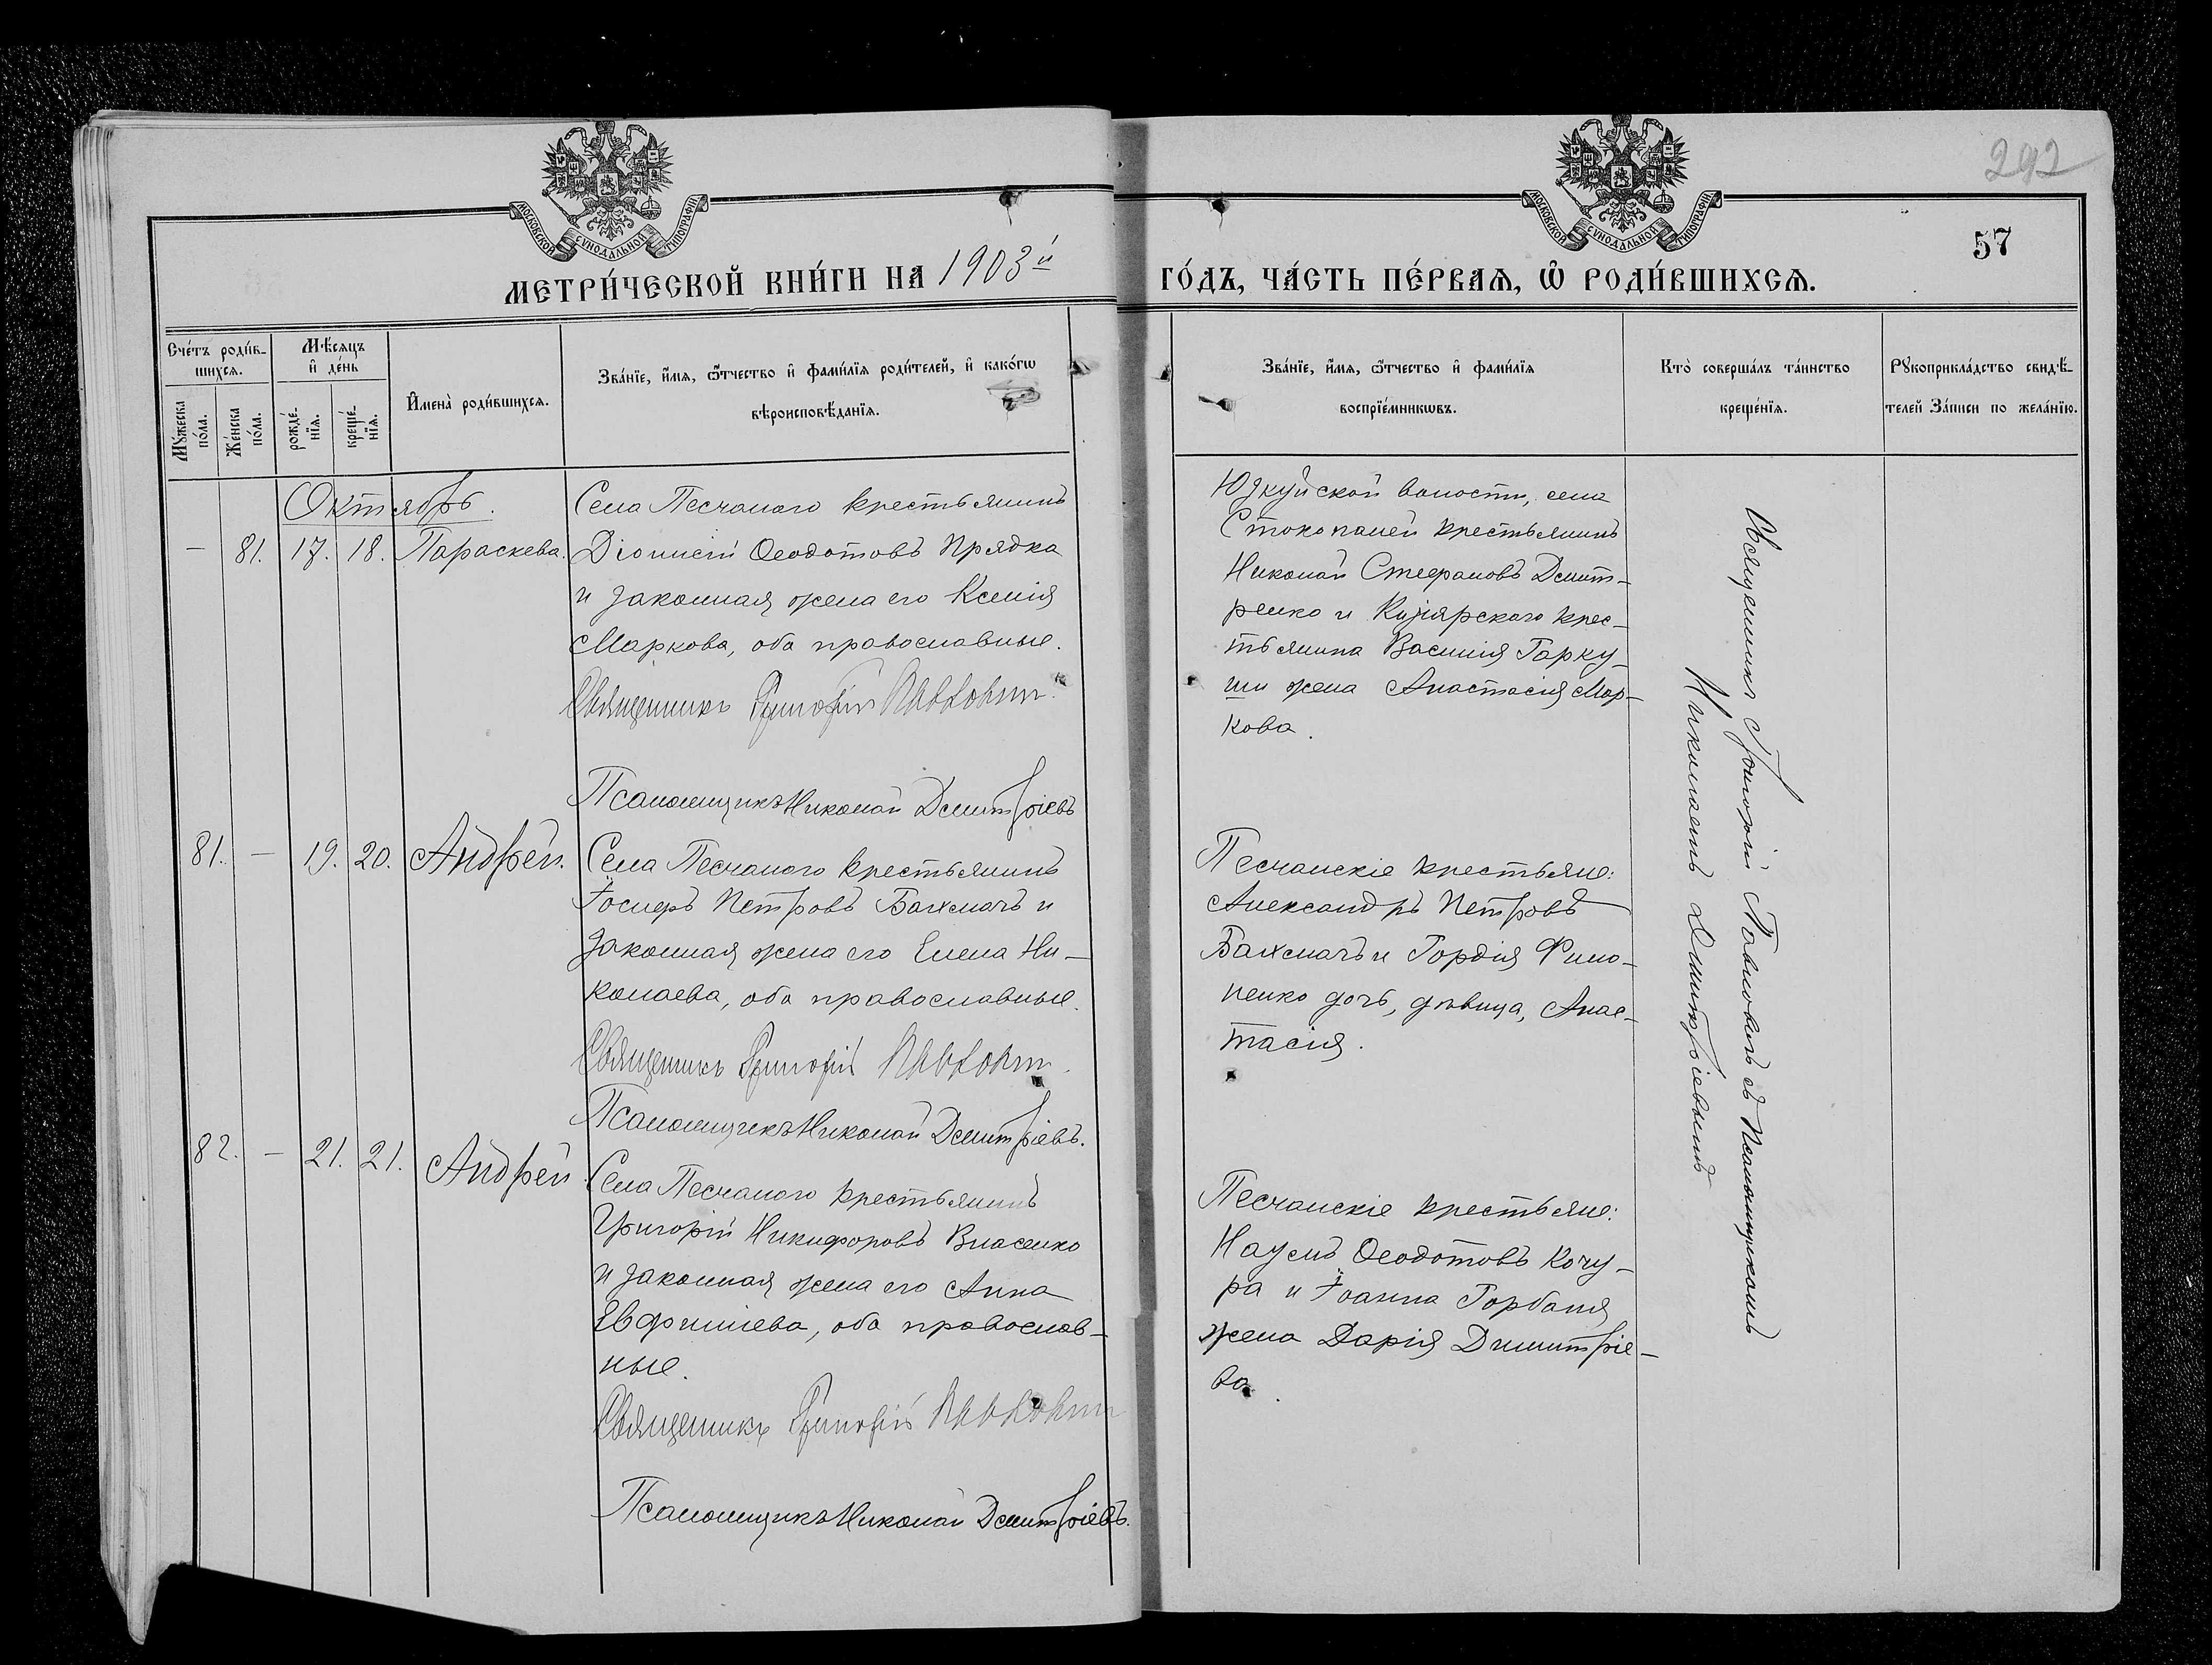 292
57
МОСКОВСКОЙ СѴНОДАЛЬНОЙ ТИПОГРАФІИ
МОСКОВСКОЙ СѴНОДАЛЬНОЙ ТИПОГРАФІИ
МЕТРИ́ЧЕСКОЙ КНИ́ГИ НА 1903й
ГО́ДЪ, ЧА́СТЬ ПЕ́РВАѦ, Ѽ РОДИ́ВШИХСѦ.
Сче́тъ роди́в-
шихсѧ.
Мꙋжеска по́ла.
Же́нска по́ла.
Мѣ́сѧцъ
и҆ де́нь
рожде́-
нїѧ.
креще́-
нїѧ.
И҆мена̀ роди́вшихсѧ.
Зва́нїе, и҆́мѧ, ѻ҆́тчество и҆ фами́лїѧ роди́телей, и҆ како́гѡ
вѣроисповѣ́данїѧ.
Зва́нїе, и҆́мѧ, ѻ҆́тчество и҆ фами́лїѧ
воспрїе́мникѡвъ.
Кто̀ соверша́лъ та́инство
креще́нїѧ.
Рꙋкоприкла́дство свидѣ́-
телей За́писи по жела́нїю.
Октябрь.
— 81. 17. 18. Параскева.
Села Песчанаго крестьянинъ
Діонисій Ѳеодотовъ Прядка
и законная жена его Ксенія
Маркова, оба православные.
Священникъ Григорій Павловичъ
Псаломщикъ Николай Дмитріевъ
волости, села
крестьянинъ
Николай Стефановъ Дмит-
ренко и крес-
тьянина Василія Гарку-
ши жена Анастасія Мар-
кова.
81. — 19. 20. Андрей.
Села Песчанаго крестьянинъ
Іосифъ Петровъ Бахмачъ и
законная жена его Елена Ни-
колаева, оба православные.
Священникъ Григорій Павловичъ
Псаломщикъ Николай Дмитріевъ.
Песчанскіе крестьяне:
Александръ Петровъ
Бахмачъ и Гордія Фило-
ненко дочь, дѣвица, Анас-
тасія.
82. — 21. 21. Андрей
Села Песчанаго крестьянинъ
Григорій Никифоровъ Власенко
и законная жена его Анна
Евфиміева, оба православ-
ные.
Священникъ Григорій Павловичъ
Псаломщикъ Николай Дмитріевъ.
Песчанскіе крестьяне:
Наумъ Ѳеодотовъ Кочу-
ра и Іоанна Горбаня
жена Дарія Димитріе-
ва.
Священникъ Григорій Павловичъ съ Псаломщикомъ
Николаемъ Дмитріевымъ